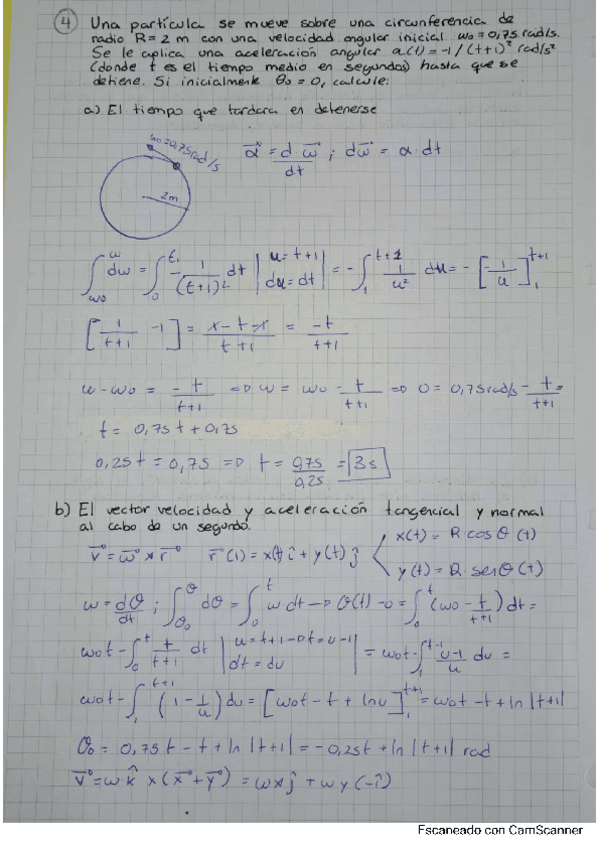 4 Una partícula se mueve sobre una circunferencia de
radio R = 2 m con una velocidad angular inicial ω₀ = 0,75 rad/s.
Se le aplica una aceleración angular α(t) = -1/(t+1)² rad/s²
(donde t es el tiempo medio en segundos) hasta que se
detiene. Si inicialmente θ₀ = 0, calcule:
a) El tiempo que tardará en detenerse
ω₀ = 0,75 rad/s
2m
α⃗ = dω⃗/dt ; dω⃗ = α·dt
∫_{ω₀}^{ω} dω = ∫_0^t - 1/(t+1)² dt | u = t+1 du = dt | = -∫_1^{t+1} 1/u² du = -[-1/u]_1^{t+1}
[1/(t+1) - 1] = (1 - t - 1)/(t+1) = -t/(t+1)
ω - ω₀ = -t/(t+1) => ω = ω₀ - t/(t+1) => 0 = 0,75 rad/s - t/(t+1) =
t = 0,75t + 0,75
0,25t = 0,75 => t = 0,75/0,25 = 3 s
b) El vector velocidad y aceleración tangencial y normal
al cabo de un segundo.
v⃗ = ω⃗ x r⃗ r⃗(1) = x(t) î + y(t) ĵ
x(t) = R·cosθ(t)
y(t) = R·senθ(t)
ω = dθ/dt ; ∫_{θ₀}^{θ} dθ = ∫_0^t ω dt → θ(t) - 0 = ∫_0^t (ω₀ - t/(t+1)) dt =
ω₀t - ∫_0^t t/(t+1) dt | u = t+1 → t = u-1 dt = du | = ω₀t - ∫_1^{t-1} (u-1)/u du =
ω₀t - ∫_1^{t+1} (1 - 1/u) du = [ω₀t - t + ln u]_1^{t+1} = ω₀t - t + ln|t+1|
θ₀ = 0,75t - t + ln|t+1| = -0,25t + ln|t+1| rad
v⃗ = ω·k̂ x (x⃗ + y⃗) = ωx ĵ + ωy(-î)
Escaneado con CamScanner